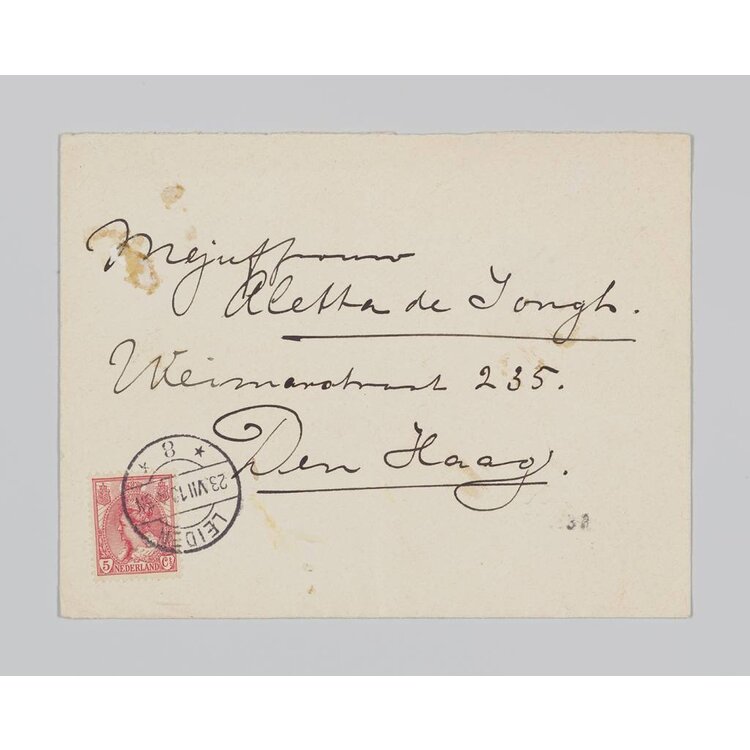 Mejuffrouw
Aletta de Jongh.
Weimarstraat 235.
Den Haag.
8
23.VII.1
LEIDEN
5 NEDERLAND Ct